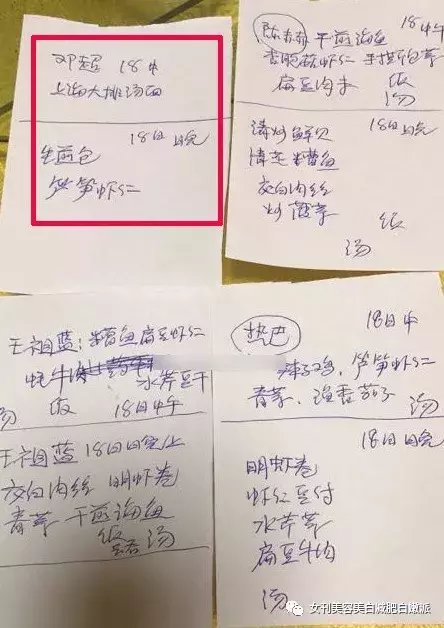 邓超 18中
上海大排汤面
18日日晚
生煎包
芦笋虾仁
陈赫 干煎海鱼 18中午
扁豆肉丝 饭
汤
清炒鲜贝 18日日晚
糟鱼
交白肉丝
炒菠菜 饭
汤
王祖蓝: 糟鱼扁豆虾仁
水芹豆干
汤 饭 18日中午
王祖蓝 18日日晚上
交白肉丝 明虾卷
青菜 干煎海鱼
饭 汤
热巴 18日中
辣子鸡, 芦笋虾仁
青菜, 鱼香茄子 汤
18日日晚
明虾卷
虾仁豆付
水芹菜
扁豆牛肉
汤
女刊美容美白减肥白嫩派